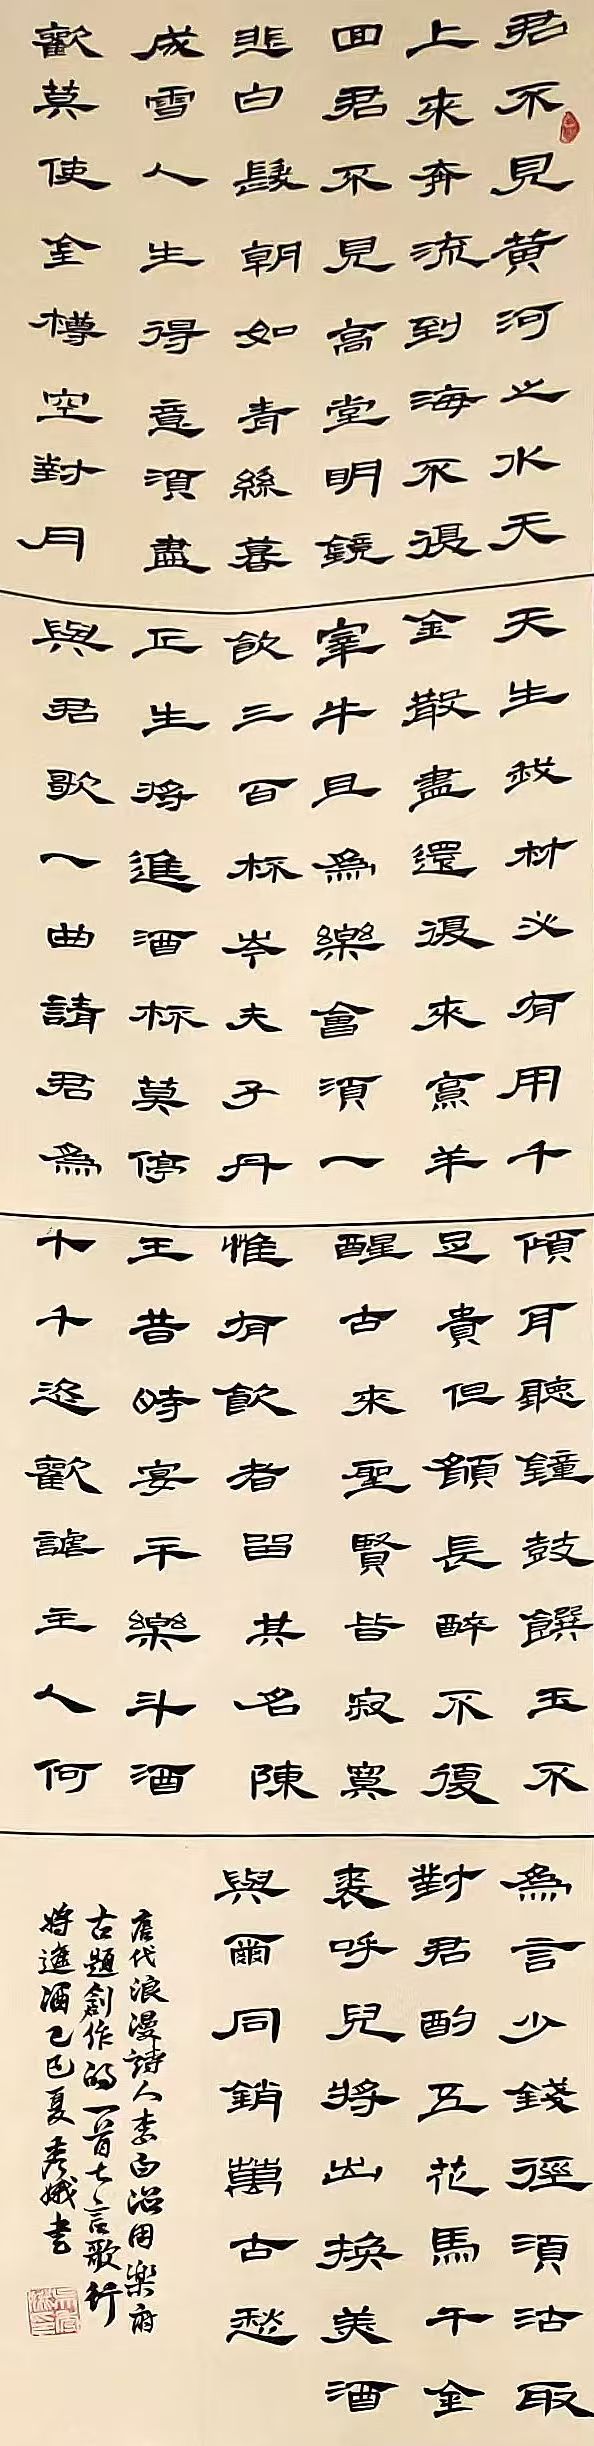 君不見黄河之水天
上來奔流到海不復
回君不見高堂明鏡
悲白髮朝如青絲暮
成雪人生得意須盡
歡莫使金樽空對月
天生我材必有用千
金散盡還復來烹羊
宰牛且為樂會須一
飲三百杯岑夫子丹
丘生將進酒杯莫停
與君歌一曲請君為
傾耳聽鐘鼓饌玉不
足貴但願長醉不復
醒古來聖賢皆寂寞
惟有飲者留其名陳
王昔時宴平樂斗酒
十千恣歡謔主人何
為言少錢徑須沽取
對君酌五花馬千金
裘呼兒將出換美酒
與爾同銷萬古愁
唐代浪漫詩人李白沿用樂府
古題創作的一首七言歌行
將進酒乙巳夏秀娥書